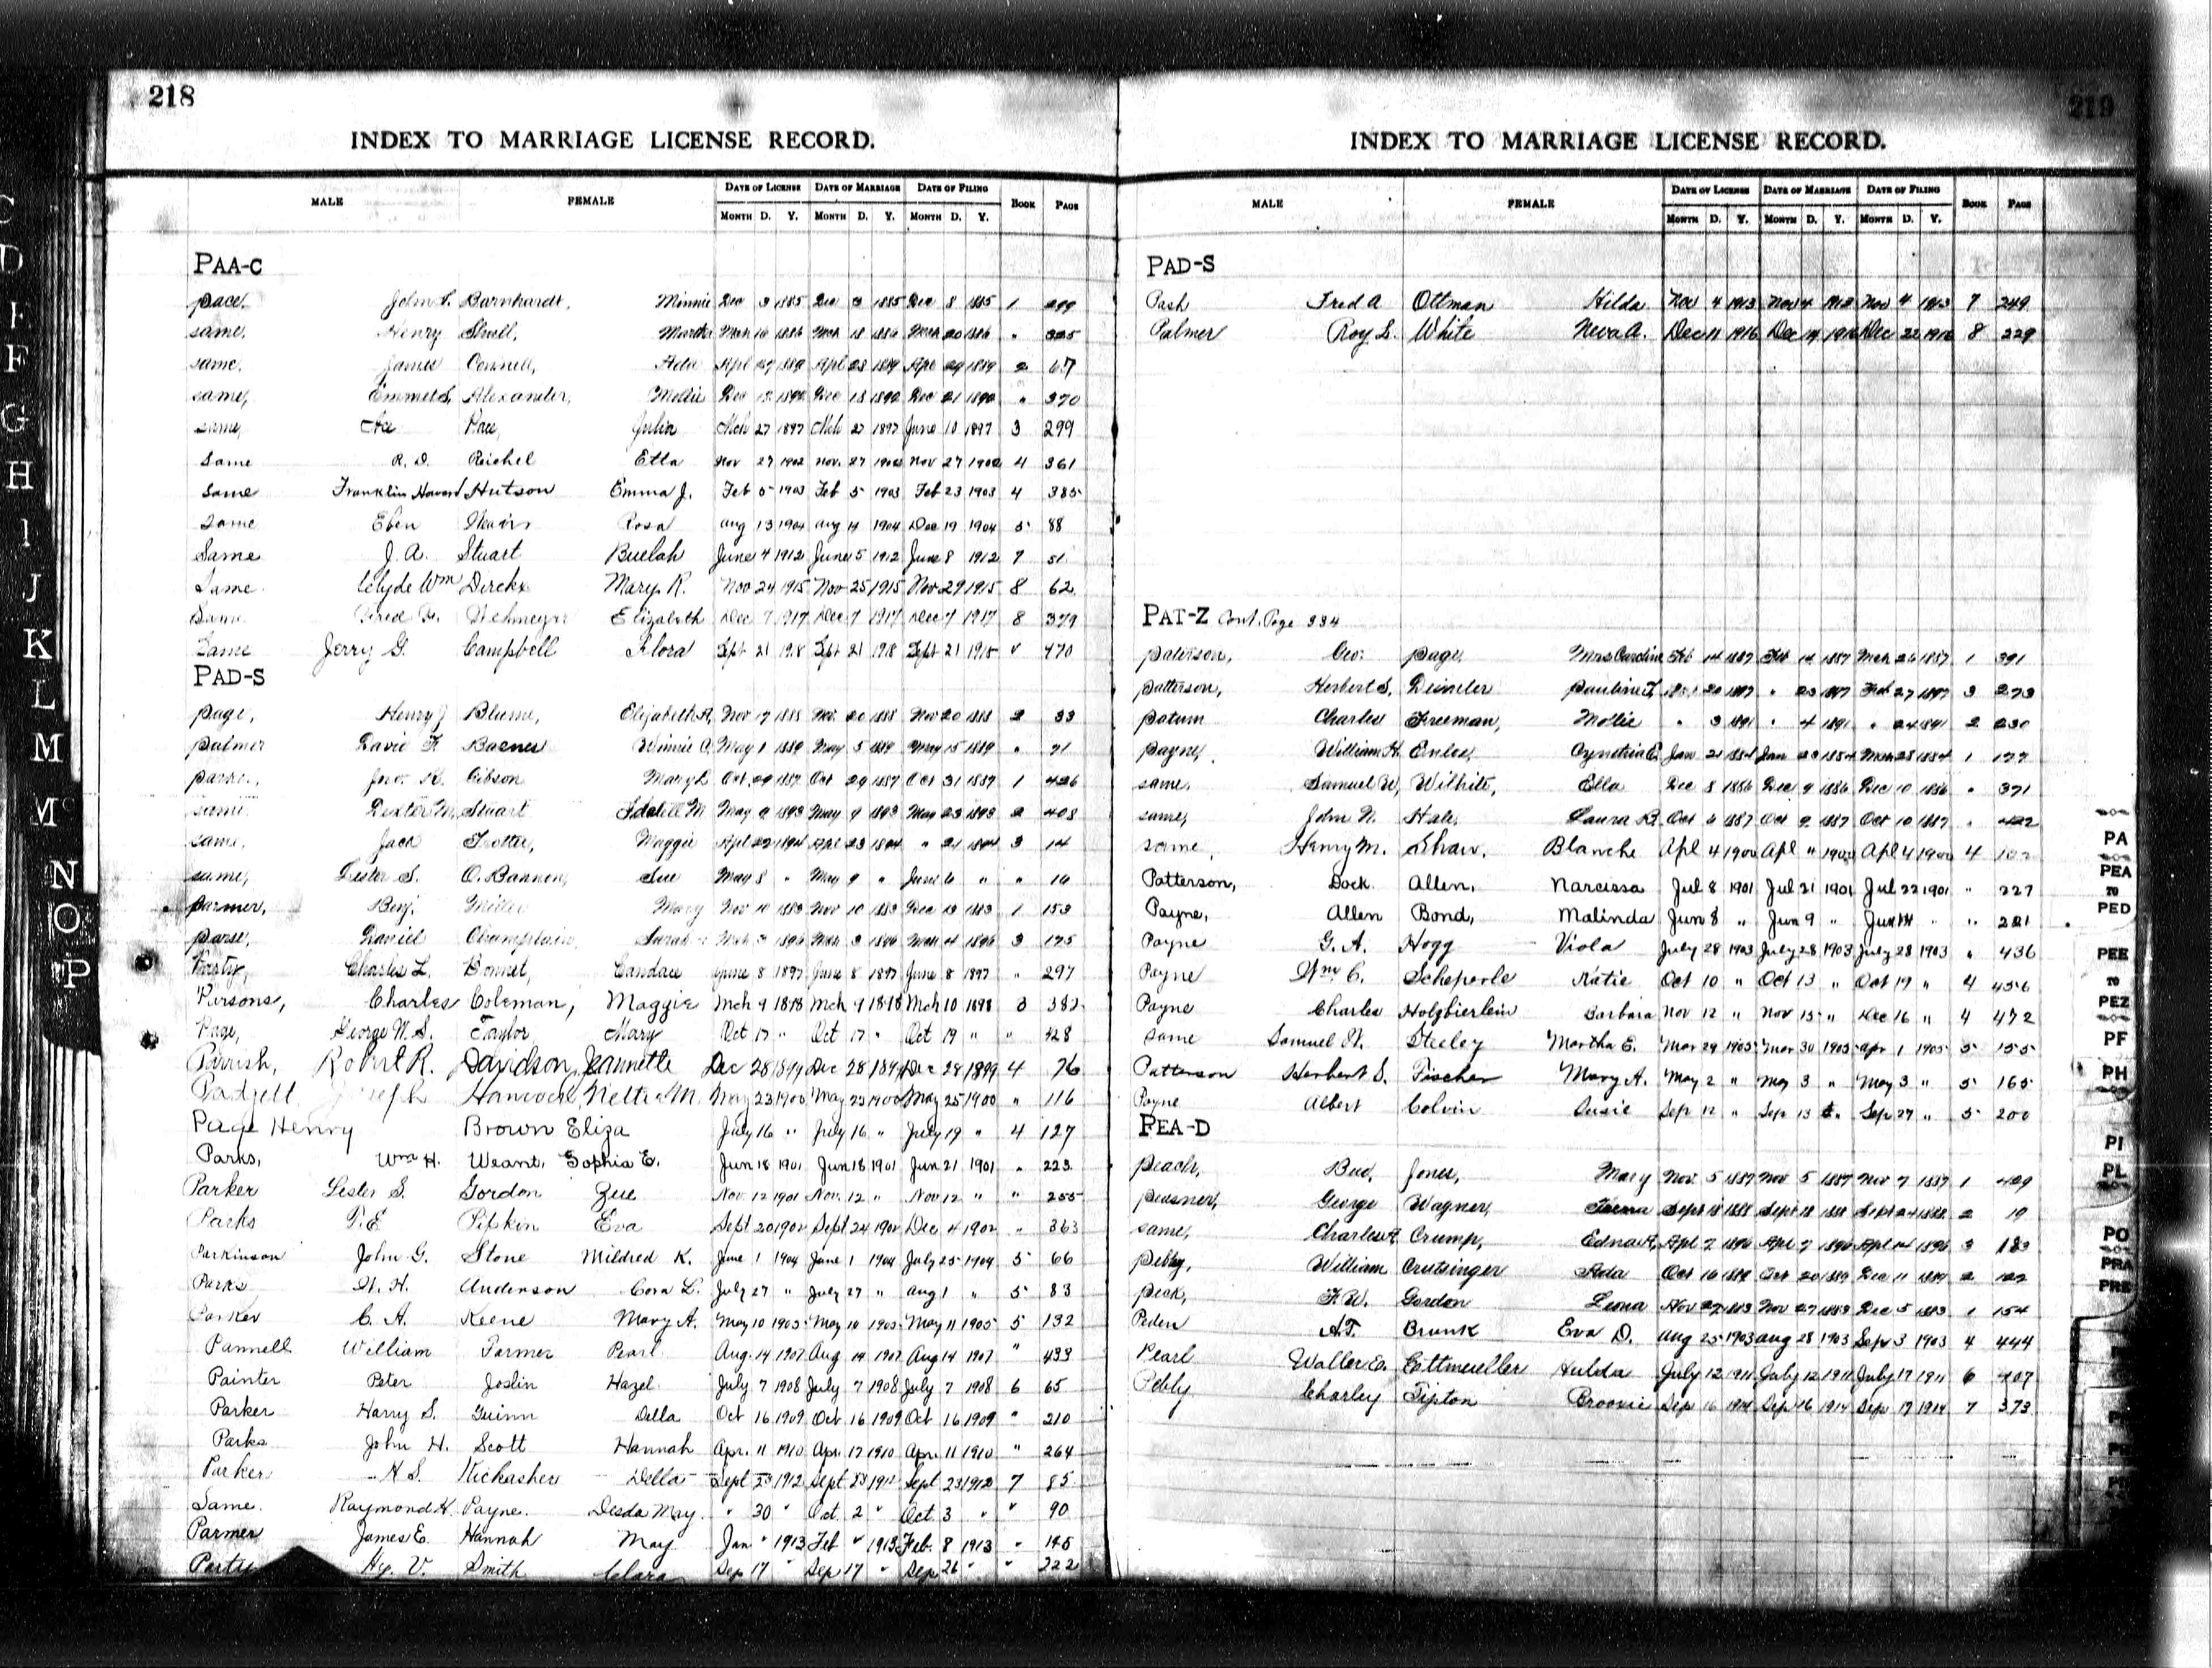 218
INDEX TO MARRIAGE LICENSE RECORD.
MALE FEMALE DATE OF LICENSE DATE OF MARRIAGE DATE OF FILING BOOK PAGE
MONTH D. Y. MONTH D. Y. MONTH D. Y.
PAA-C
Pace, John S. Barnhardt, Minnie Dec 3 1885 Dec 3 1885 Dec 8 1885 1 299
same, Henry Martha Mch 16 1886 Mch 18 1886 Mch 20 1886 " 325
same, James Connell, Ada Apl 27 1889 Apl 28 1889 Apl 29 1889 2 67
same, Emmet S. Alexander, Mollie Dec 1892 Dec 18 1892 Dec 21 1892 " 370
same, Pace, Julia Mch 27 1897 Mch 27 1897 June 10 1897 3 299
Same R. D. Reichel Etta Nov 27 1902 Nov. 27 1902 Nov 27 1902 4 361
Same Franklin Howard Hutson Emma J. Feb 5 1903 Feb 5 1903 Feb 23 1903 4 385
Same Eben Rosa Aug 13 1904 Aug 14 1904 Dec 19 1904 5 88
Same J. A. Stuart Buelah June 4 1912 June 5 1912 June 8 1912 7 51
Same Clyde Wm Dirckx Mary R. Nov 24 1915 Nov 25 1915 Nov 29 1915 8 62
Same Fred Elizabeth Dec 7 1917 Dec 7 1917 Dec 7 1917 8 379
Same Jerry G. Campbell Flora Sept 21 1918 Sept 21 1918 Sept 21 1918 " 470
PAD-S
Page, Henry J Blume, Elizabeth A. Nov 17 1888 Nov. 20 1888 Nov 20 1888 2 33
Palmer David F. Barnes Winnie A. May 1 1889 May 5 1889 May 15 1889 " 71
Jno. H. Gibson Mary L Oct. 29 1887 Oct 29 1887 Oct 31 1887 1 426
same Dexter M. Stuart May 9 1893 May 9 1893 May 23 1893 2 408
same, Jack Trotter, Maggie Apl 22 1894 Apl 23 1894 " 21 1894 3 14
same, Lester S. O. Bannen, Sue May 8 " May 9 " June 6 " " 16
Parmer, Benj. Miller Mary Nov 10 1883 Nov 10 1883 Dec 13 1883 1 153
Parse, Daniel Champlain, Sarah Mch 3 1896 Mch 3 1896 Mch 4 1896 3 175
Charles L. Bonnet, Candace June 8 1897 June 8 1897 June 8 1897 " 297
Parsons, Charles Coleman, Maggie Mch 9 1898 Mch 9 1898 Mch 10 1898 3 382
Page, George W. S. Taylor Mary Oct 17 " Oct 17 " Oct 19 " " 428
Parrish, Robert R. Davidson, Jeannette Dec 28 1899 Dec 28 1899 Dec 28 1899 4 76
Padgett Joseph Hancock, Nettie M. May 23 1900 May 23 1900 May 25 1900 " 116
Page Henry Brown Eliza July 16 " July 16 " July 19 " 4 127
Parks, Wm H. Weant, Sophia E. Jun 18 1901 Jun 18 1901 Jun 21 1901 " 223
Parker Lester S. Gordon Zue Nov. 12 1901 Nov. 12 " Nov 12 " " 255
Parks P. E. Pipkin Eva Sept 20 1902 Sept 24 1902 Dec 4 1902 " 363
Parkinson John G. Stone Mildred K. June 1 1904 June 1 1904 July 25 1904 5 66
Parks W. H. Anderson Cora L. July 27 " July 27 " Aug 1 " 5 83
Parker C. A. Keene Mary A. May 10 1905 May 10 1905 May 11 1905 5 132
Pannell William Farmer Pearl Aug. 14 1907 Aug 14 1907 Aug 14 1907 " 433
Painter Peter Joslin Hazel July 7 1908 July 7 1908 July 7 1908 6 65
Parker Harry S. Guinn Della Oct 16 1909 Oct 16 1909 Oct 16 1909 " 210
Parks John H. Scott Hannah Apr. 11 1910 Apr. 17 1910 Apr. 11 1910 " 264
Parker H S. Kickasher Della Sept 23 1912 Sept 23 1912 Sept 23 1912 7 85
Same. Raymond H. Payne. Desda May. " 30 " Oct. 2 " Oct. 3 " " 90
Parmer James E. Hannah May Jan " 1913 Feb " 1913 Feb. 8 1913 " 145
Party Hy. V. Smith Clara Sep 17 " Sep 17 " Sep 26 " " 222
219
INDEX TO MARRIAGE LICENSE RECORD.
MALE FEMALE DATE OF LICENSE DATE OF MARRIAGE DATE OF FILING BOOK PAGE
MONTH D. Y. MONTH D. Y. MONTH D. Y.
PAD-S
Pash Fred A Ottman Hilda Nov 4 1913 Nov 4 1913 Nov 4 1913 7 249
Palmer Roy L. White Neva A. Dec 11 1916 Dec 19 1916 Dec 22 1916 8 229
PAT-Z Cont. Page 334
Paterson, Geo. Page, Mrs Caroline Feb 14 1887 Feb 14 1887 Mch 26 1887 1 391
Patterson, Herbert S. Deimler Pauline T. 20 1897 " 23 1897 Feb 27 1897 3 273
Patum Charles Freeman, Mollie " 3 1891 " 4 1891 " 24 1891 2 230
Payne, William H. Enloe, Cynthia E. Jan 21 1884 Jan 23 1884 Mch 28 1884 1 177
same, Samuel W, Wilhite, Ella Dec 8 1886 Dec 9 1886 Dec 10 1886 " 371
same, John N. Hale, Laura B. Oct 6 1887 Oct 9 1887 Oct 10 1887 " 422
same, Henry M. Shaw, Blanche Apl 4 1900 Apl " 1900 Apl 4 1900 4
Patterson, Dock Allen, Narcissa Jul 8 1901 Jul 21 1901 Jul 22 1901 " 227
Payne, Allen Bond, Malinda Jun 8 " Jun 9 " Jun 14 " " 221
Payne G. A. Hogg Viola July 28 1903 July 28 1903 July 28 1903 " 436
Payne Wm C. Scheperle Katie Oct 10 " Oct 13 " Oct 19 " 4 456
Payne Charles Holzbierlein Barbara Nov 12 " Nov 15 " Dec 16 " 4 472
Same Samuel W. Steeley Martha E. Mar 29 1905 Mar 30 1905 Apr 1 1905 5 155
Patterson Herbert S. Fischer Mary A. May 2 " May 3 " May 3 " 5 165
Payne Albert Colvin Susie Sep 12 " Sep 13 " Sep 27 " 5 200
PEA-D
Peach, Bud, Jones, Mary Nov. 5 1887 Nov 5 1887 Nov 7 1887 1 429
Peasner, George Wagner, Sept 18 1888 Sept 18 1888 Sept 24 1888 2 19
same, Charles A. Crump, Edna A. Apl 7 1896 Apl 7 1896 Apl 14 1896 3 183
William Crutsinger Oct 16 1889 Oct 20 1889 Dec 11 1889 2 122
Peak, F. W. Gordon Leona Nov 27 1883 Nov 27 1883 Dec 5 1883 1 154
Peden A. T. Brunk Eva D. Aug 25 1903 Aug 28 1903 Sep 3 1903 4 444
Pearl Walter E. Huldа July 12 1911 July 12 1911 July 17 1911 6 407
Charley Tipton Sep 16 1914 Sep 16 1914 Sep 17 1914 7 373
D
F
G
H
I
J
K
L
M
Mc
N
O
P
PA
PEA
TO
PED
PEE
TO
PEZ
PF
PH
PI
PL
PO
PRA
PRE